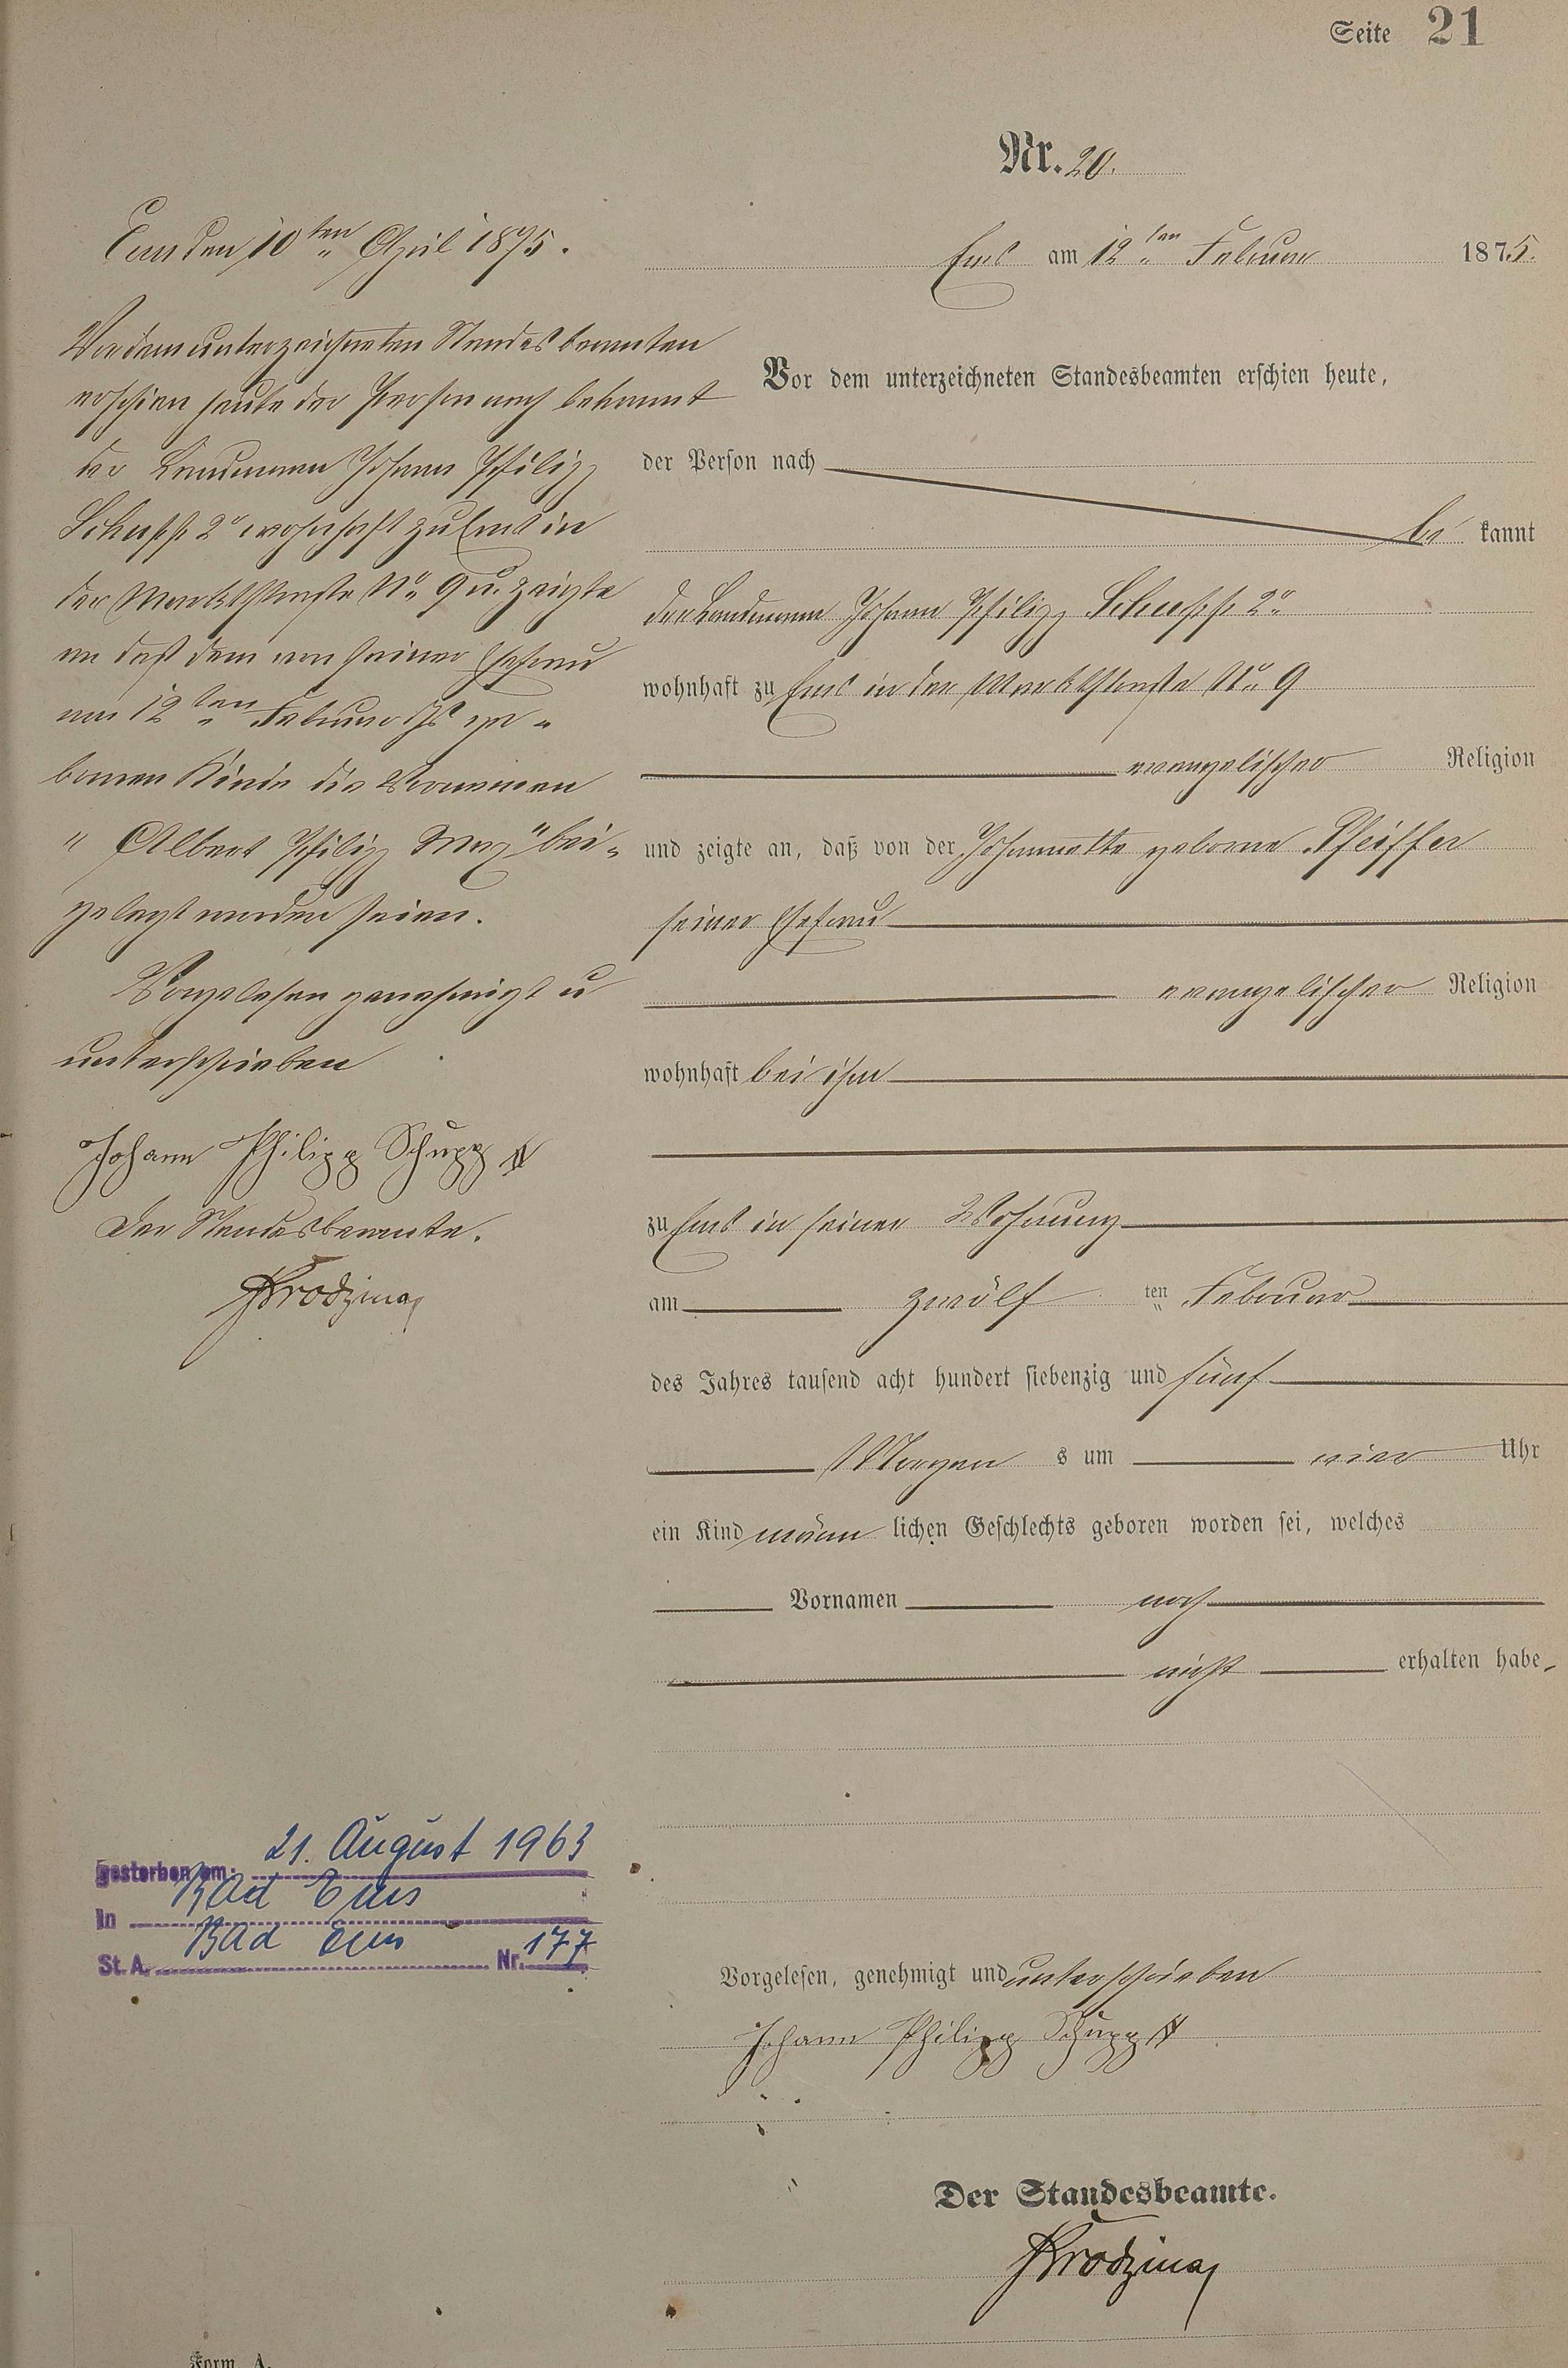 Seite 21
Nr. 20.
Ems am 12ten Februar 1875.
Vor dem unterzeichneten Standesbeamten erschien heute,
der Person nach
be kannt
der Landmann Johann Philipp Schupp 2r
wohnhaft zu Ems in der Marktstraße No 9
evangelischer Religion
und zeigte an, daß von der Johannette geborne Pfeiffer
seiner Ehefrau
evangelischer Religion
wohnhaft bei ihm
zu Ems in seiner Wohnung
am zwölf ten Februar
des Jahres tausend acht hundert siebenzig und fünf
Morgen s um vier Uhr
ein Kind männ lichen Geschlechts geboren worden sei, welches
Vornamen noch
nicht erhalten habe.
Vorgelesen, genehmigt und unterschrieben
Johann Philipp Schupp II
Der Standesbeamte.
Ems den 10ten April 1875.
Vor dem unterzeichneten Standesbeamten
erschien heute der Person nach bekannt
der Landmann Johann Philipp
Schupp 2r wohnhaft zu Ems in
der Marktstraße No 9 u. zeigte
an daß dem von seiner Ehefrau
am 12ten Februar d Js ge-
bornen Kinde die Vornamen
"Albert Philipp Max" bei-
gelegt worden seien.
Vorgelesen genehmigt u
unterschrieben
Johann Philipp Schupp II
Der Standesbeamte.
gestorben am: 21. August 1963
in Bad Ems
St. A. Bad Ems Nr. 177
Form A.